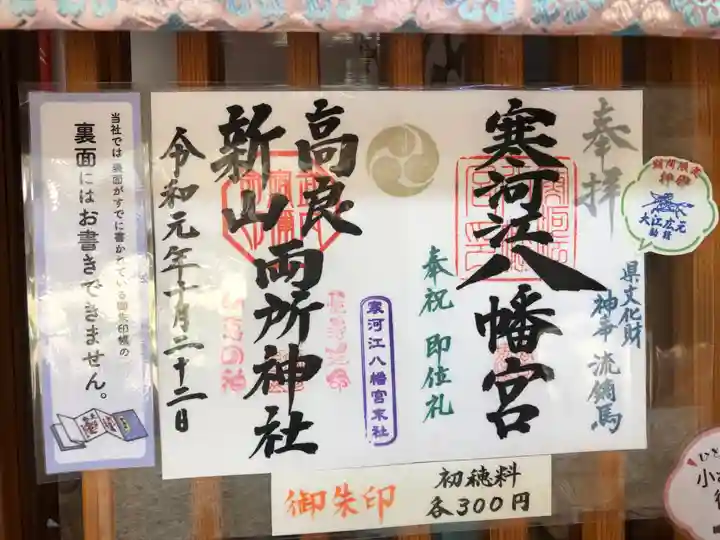 奉拝
寒河江八幡宮
県文化財
神事 流鏑馬
奉祝 即位礼
寒河江八幡宮末社
高良
新山 両所神社
令和元年十月二十二日
当社では裏面がすでに書かれている御朱印帳の
裏面にはお書きできません。
大江広元
勧請
御朱印
初穂料
各300円
小